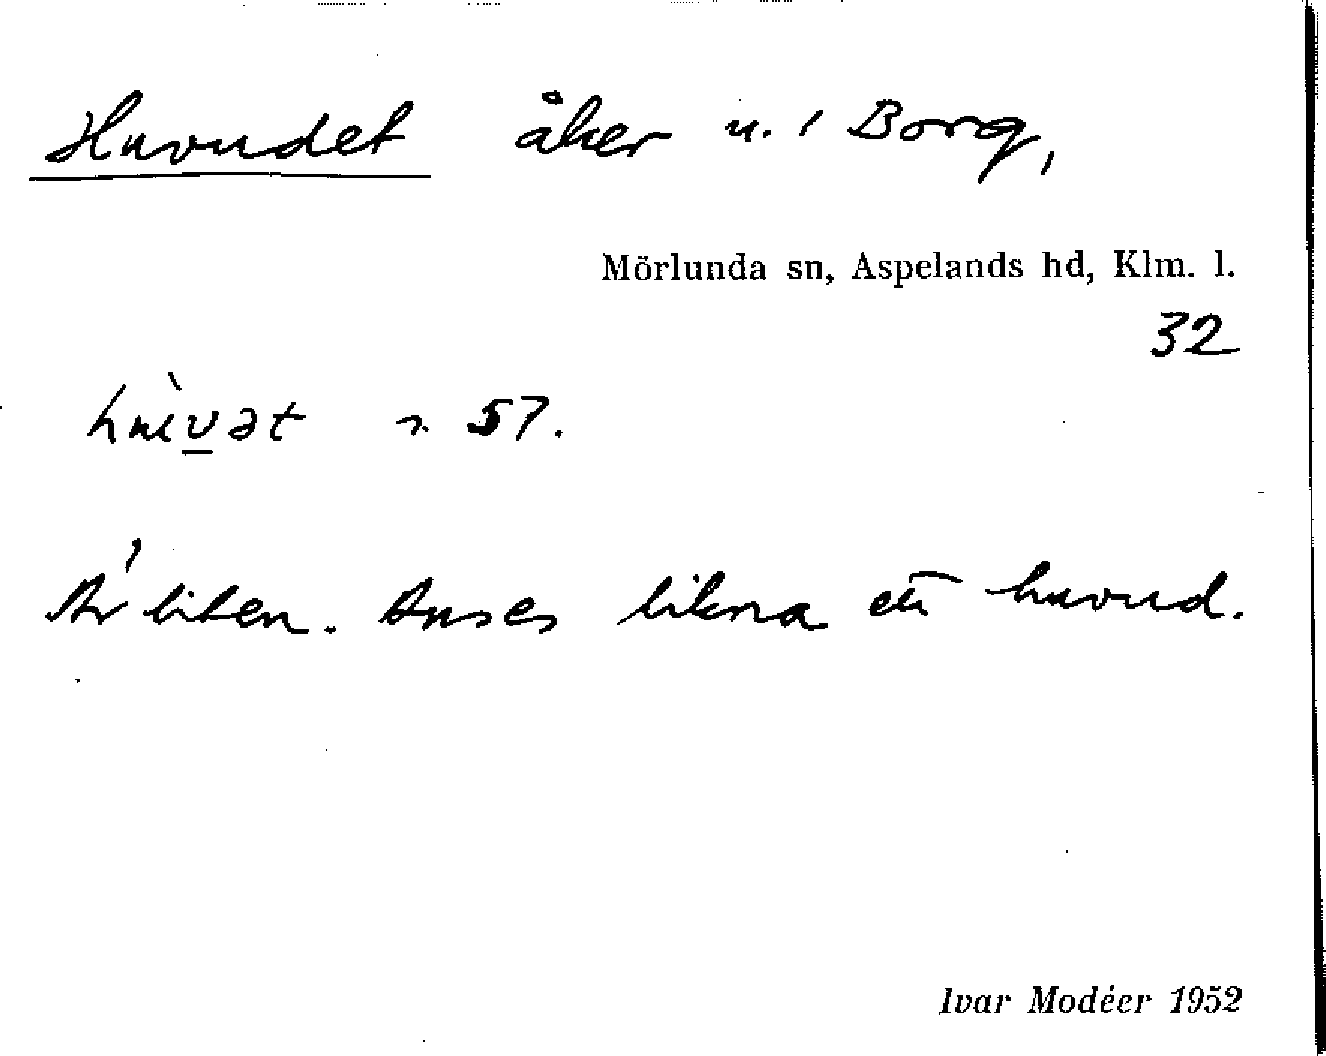 Huvudet åker u. / Borg,
Mörlunda sn, Aspelands hd, Klm. l.
32
57.
Är liten. Anses likna ett huvud.
Ivar Modéer 1952